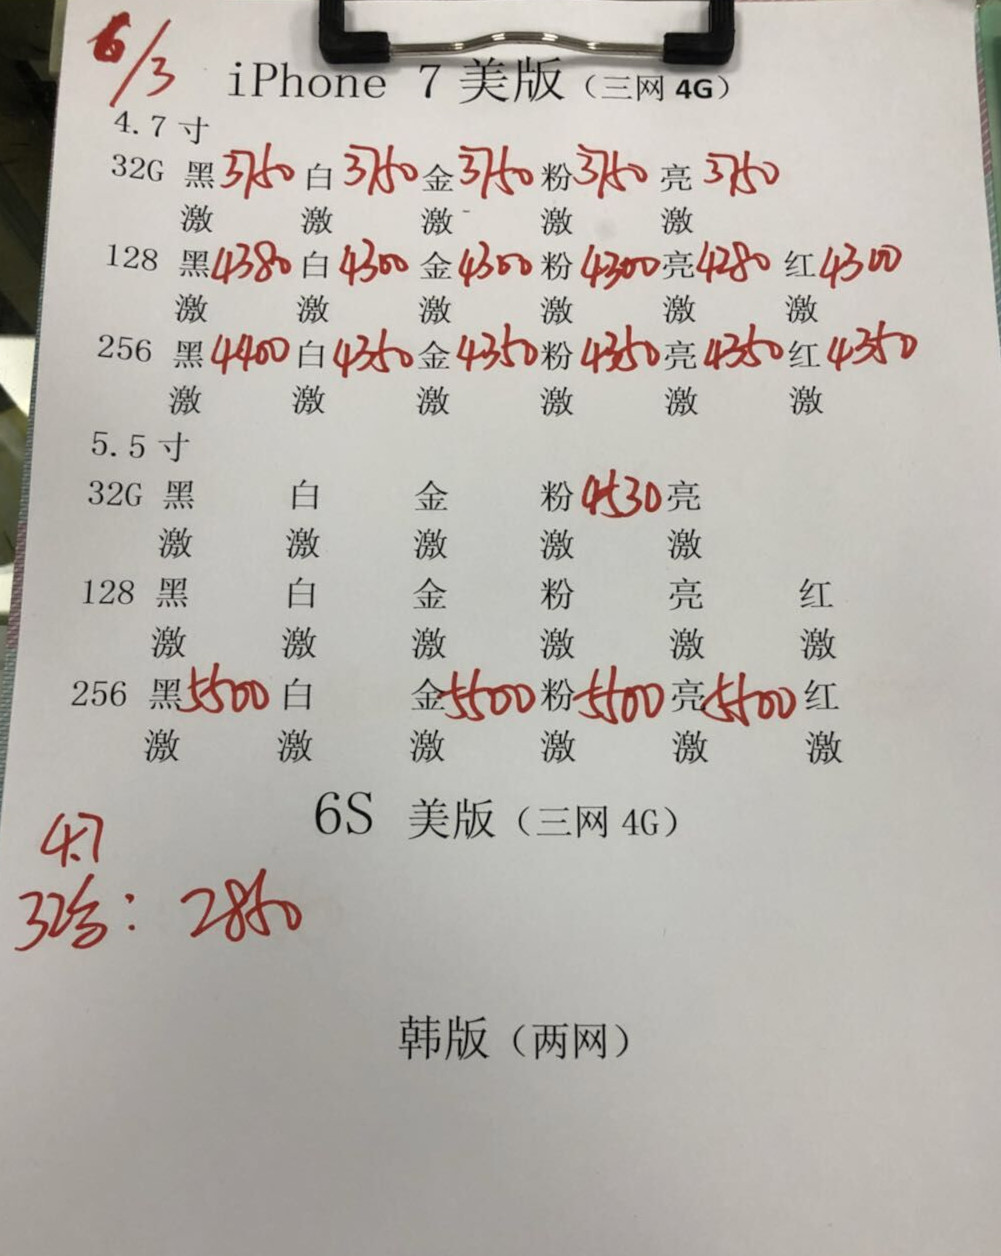 6/3
iPhone 7 美版（三网 4G）
4.7 寸
32G 黑 3750 白 3750 金 3750 粉 3750 亮 3750
激 激 激 激 激
128 黑 4380 白 4300 金 4300 粉 4300 亮 4280 红 4300
激 激 激 激 激 激
256 黑 4400 白 4350 金 4350 粉 4350 亮 4350 红 4350
激 激 激 激 激 激
5.5 寸
32G 黑 白 金 粉 4530 亮
激 激 激 激 激
128 黑 白 金 粉 亮 红
激 激 激 激 激 激
256 黑 5500 白 金 5500 粉 5500 亮 5500 红
激 激 激 激 激 激
6S 美版（三网 4G）
4.7
32 : 2850
韩版（两网）